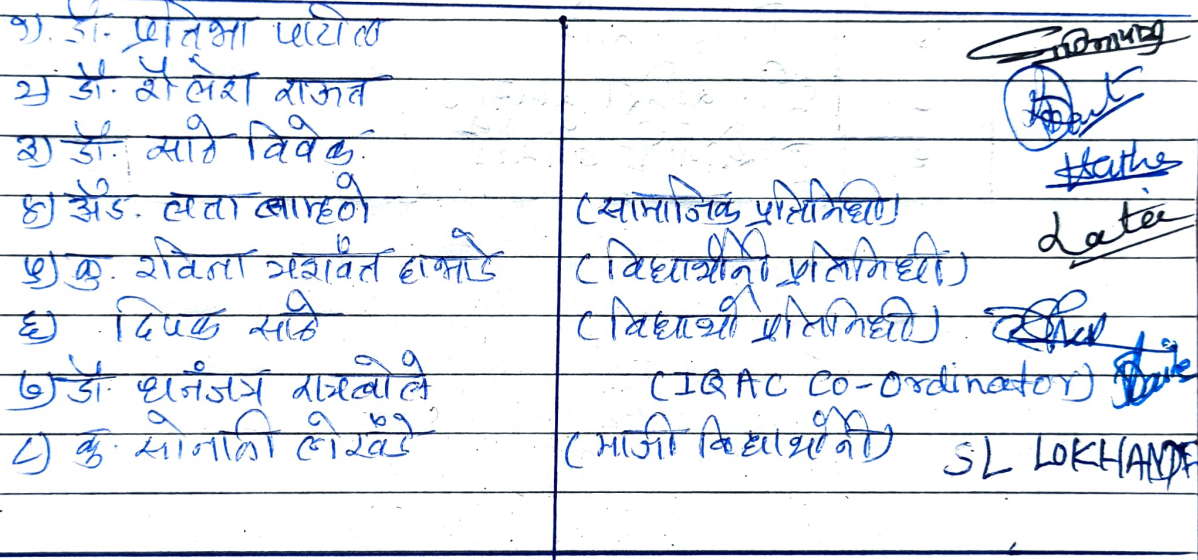 १) डॉ. प्रतिभा पाटील
२) डॉ. शैलेश राऊत
३) डॉ. साठे विवेक.
४) अँड. लता बाम्हणे (सामाजिक प्रतिनिधी)
५) कु. रविना यशवंत दाभाडे (विद्यार्थीनी प्रतिनिधी)
६) दिपक साठे (विद्यार्थी प्रतिनिधी)
७) डॉ. धनंजय रायबोले (IQAC Co-Ordinator)
८) कु. सोनाली लोखंडे (माजी विद्यार्थीनी) SL LOKHANDE